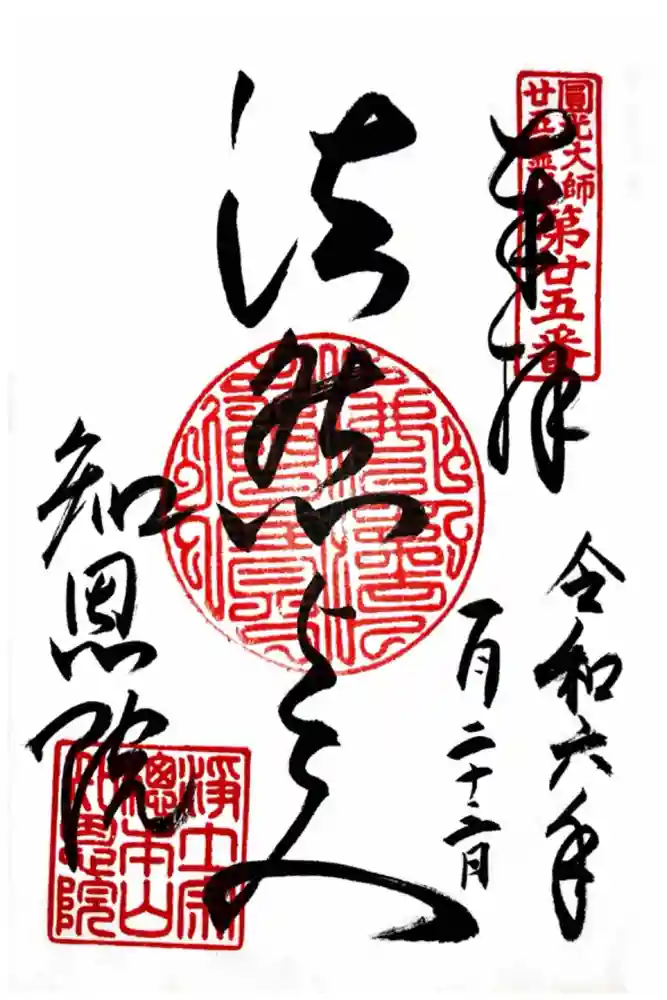 圓光大師
廿五霊
第廿五番
奉拝
令和六年
一月二十三日
法然上人
知恩院
淨土宗
總本山
知恩院